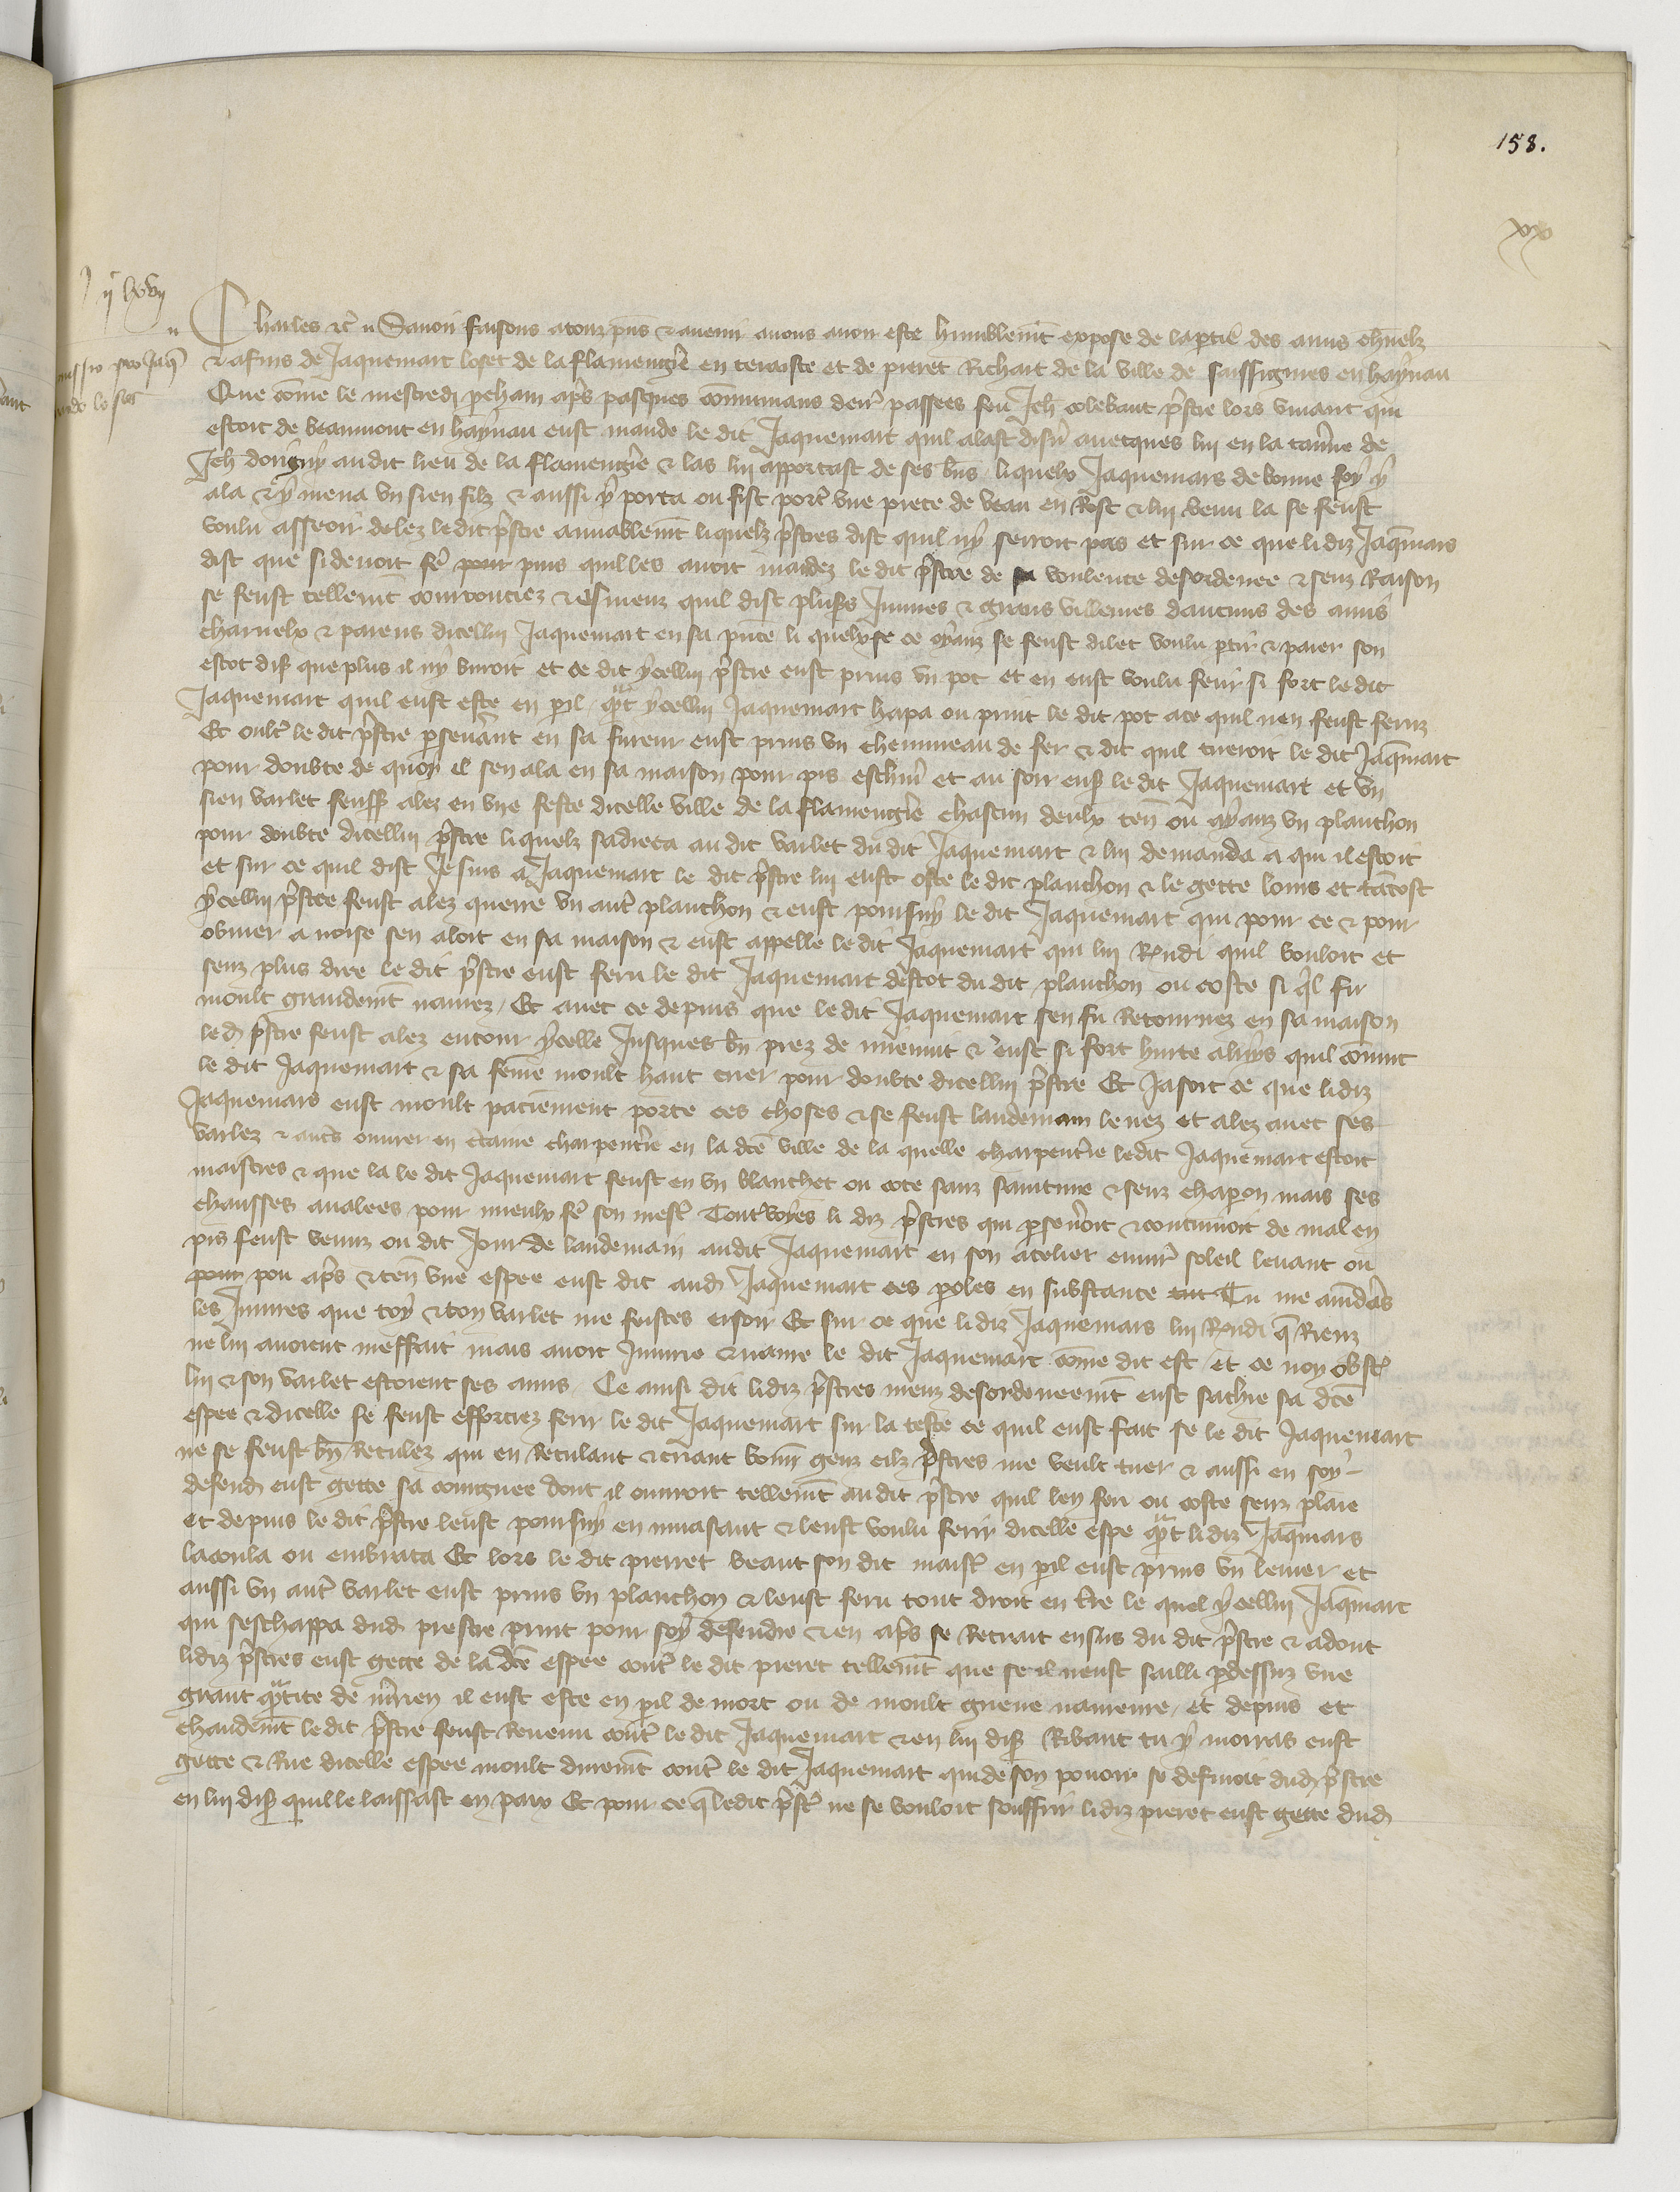 158.
xx
ii lxvii
Charles etc Savoir faisons a touz pns et avenir avons avoir este humblemt expose de la partie des amis charnelz
et afins de Jaquemart loset de la flamengie en teraisse et de pieret Richart de la ville de sassignies en haynau
Que come le mescredi pchain aprs pasques comunians derr passees feu Jeh colebaut prstre lors vivant qui
estoit de beaumont en haynau eust mande le dit Jaquemart quil alast disnr avecques lui en la tavrne de
Jeh dorigny au dit lieu de la flamengie et las lui apportast de ses bns liquelx Jaquemars de bonne foy y
ala et y mena un sien filz et aussi y porta ou fist portr une piece de veau en Rost et lui venu la se feust
voulu asseoir delez le dit prstre amiablemt liquelz prstres dist quil ny serroit pas et sur ce que li diz Jaqmars
dist que si devoit fe puis quil les avoit mandez le dit prstre de voulente desordenee et senz Raison
se feust tellemt courouciez et esmeuz quil dist plusrs Jniures et grans villenies daucuns des amis
charnelx et parens dicellui Jaquemart en sa pnce li quelx ce oyanz se feust dilec voulu ptir et paier son
escot dis que plus il ny buroit et ce dit ycellui prstre eust prins un pot et en eust voulu ferir si fort le dit
Jaquemart quil eust este en pil qnt ycellui Jaquemart hapa ou print le dit pot ace quil nen feust feruz
Et oultr le dit prstre psevant en sa fureur eust prins un chemineau de fer et dit quil tueroit le dit Jaqmart
pour doubte de quoy il sen ala en sa maison pour pis eschiver et au soir ens le dit Jaquemart et un
sien varlet feuss alez en une feste dicelle ville de la flamengie chascun deulx ten ou ayanz un planchon
pour doubte dicellui prstre liquelz sadreca au dit varlet du dit Jaquemart et lui demanda a qui il estoit
et sur ce quil dist Je suis a Jaquemart le dit prstre lui eust oste le dit planchon et le gette loins et tantost
ycellui prstre feust alez querre un autr planchon et eust poursuy le dit Jaquemart qui pour ce et pour
obvier a noise sen aloit en sa maison et eust appelle le dit Jaquemart qui lui Rndi quil vouloit et
senz plus dire le dit prstre eust feru le dit Jaquemart destoc du dit planchon ou coste si ql fu
moult grandemt navrez Et avec ce depuis que le dit Jaquemart sen fu Retournez en sa maison
led prstre feust alez entour ycelle Jusques bn prez de mienuit et eust si fort hurte alhuys quil covint
le dit Jaquemart et sa feme moult haut crier pour doubte dicellui prstre Et Jasoit ce que li diz
Jaquemars eust moult paciement porte ces choses et se feust landemain levez et alez avec ses
varlez et autrs ouvrer en crtaine charpentrie en la dce ville de la quelle charpentrie ledit Jaquemart estoit
maistres et que la le dit Jaquemart feust en un blanchet ou cote sanz sainture et senz chaperon mais ses
chausses avalees pour mieulx fe son mestr Toutvoyes li diz prstres qui psevroit et continuoit de mal en
pis feust venuz ou dit Jour de landemain audit Jaquemart en son atelier envir soleil levant ou
pou aprs et ten une espee eust dit aud Jaquemart ces paroles en substance Tu me amdras
les Jniures que toy et ton varlet me feistes ersoir Et sur ce que li diz Jaquemars lui Rndi q Rienz
ne lui avoient meffait mais avoit Jniurie et navre le dit Jaquemart come dit est et ce non obst
lui et son varlet estoient ses amis Ce ainsi dit li diz prstres meuz desordeneemt eust sachie sa dce
espee et dicelle se feust efforciez ferir le dit Jaquemart sur la teste ce quil eust fait se le dit Jaquemart
ne se feust bn Reculez qui en Reculant et criant bonn genz cilz prstres me veult tuer et aussi en soy
defend eust gette sa coingnee dont il ouvroit tellemt au dit prstre quil len feri ou coste senz plaie
et depuis le dit prstre leust poursuy en muasant et leust voulu ferir dicelle espe qnt li diz Jaqmars
lacoula ou embraca Et lors le dit pierret veant son dit maistr en pil eust prins un levier et
aussi un autr varlet eust prins un planchon et leust feru tout droit en tre le quel ycellui Jaqmart
qui seschappa dud prestre print pour soy defendre et en aprs se Retrait ensus du dit prstre et adont
li diz prstres eust gette de la dce espee contr le dit pieret tellemt que se il neust sailli pdessuz une
grant qntite de mrrien il eust este en pil de mort ou de moult grieve navreure et depuis et
chaudemt le dit prstre feust Revenu contr le dit Jaquemart et en lui dis Ribaut tu y morras eust
gette et Rue dicelle espee moult duremt contr le dit Jaquemart qui de son povoir se defnoit dud prstre
en lui dis quil le laissast en paix Et pour ce q ledit prstr ne se vouloit souffrir li diz pieret eust gette dud